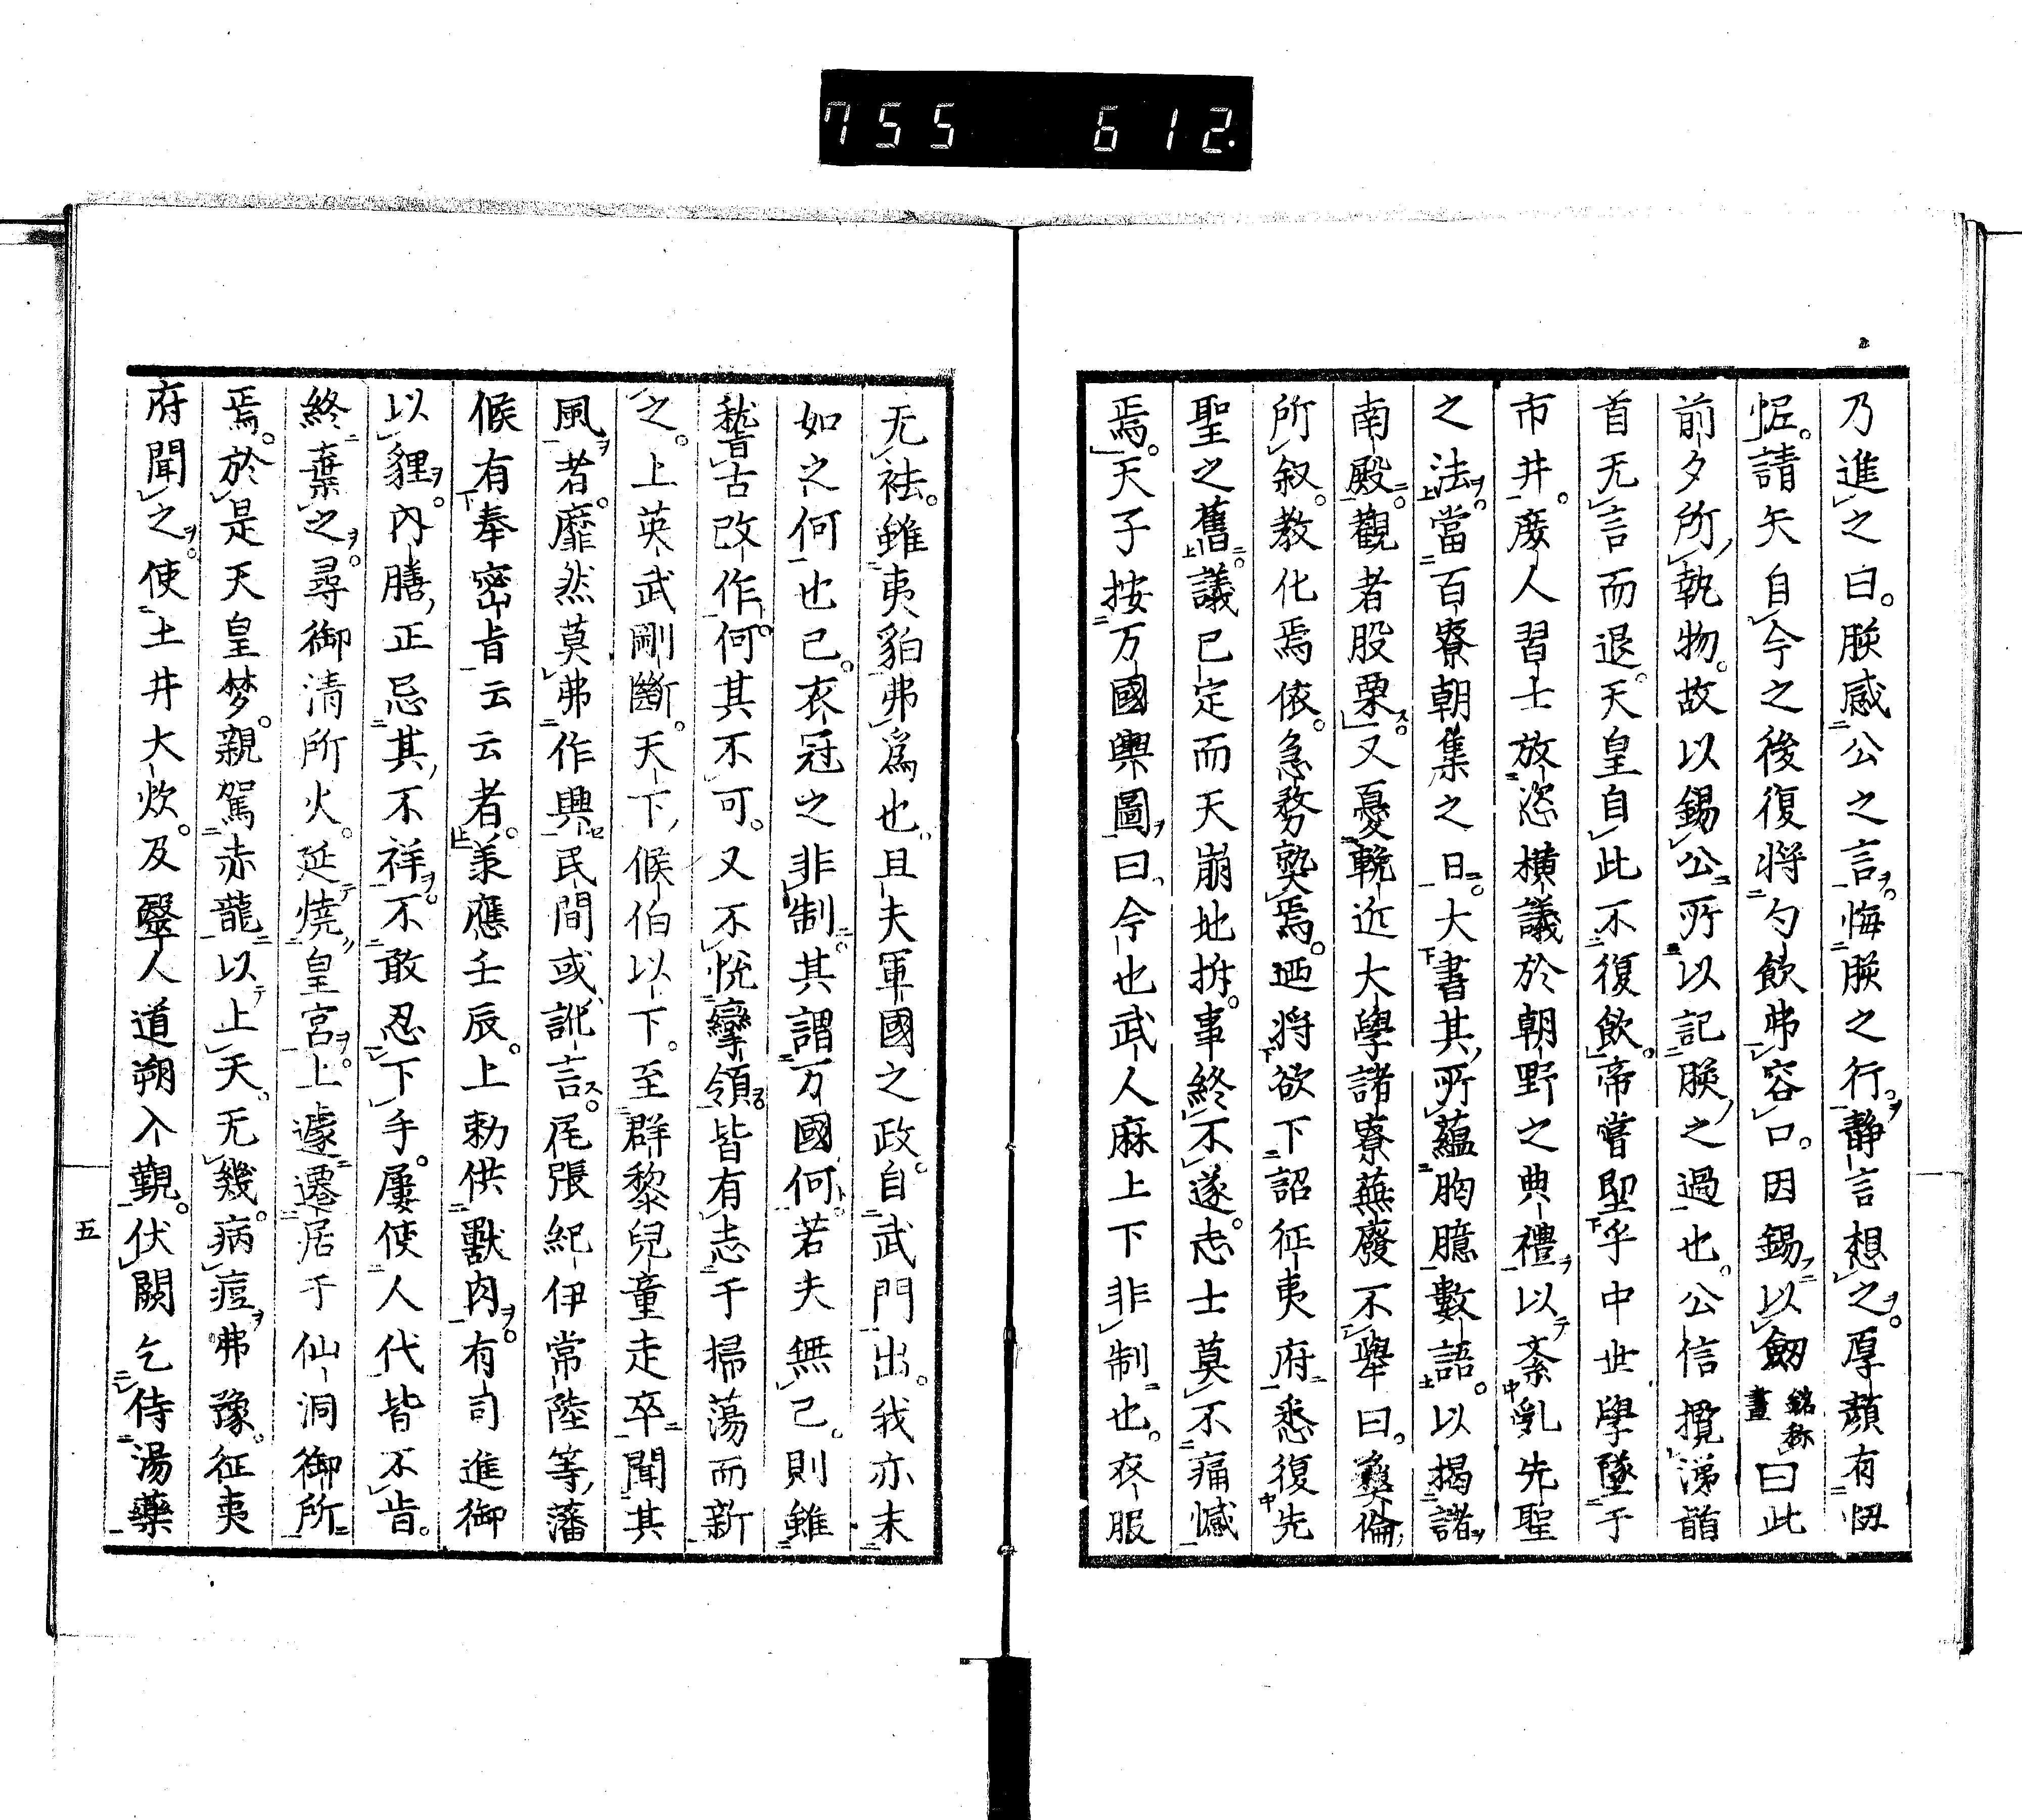 755 612.
乃進之曰。朕感公之言。悔朕之行。静言想之。厚顏有忸
怩。請矢自今之後復将勺飲弗容口。因錫以劔銘称畫曰此
前夕所執物。故以錫公所以記朕之過也。公信攬涕首
首无言而退。天皇自此不復飲。帝嘗聖乎中世學墜于
市井。庶人習士放恣横議於朝野之典禮以紊乱先聖
之法。當百寮朝集之日。大書其所蘊胸臆數語。以揭諸
南殿。觀者股栗。又憂輓近大學諸寮蕪廢不舉曰。彝倫
所叙。教化焉依。急務孰焉。迺将欲下詔征夷府悉復先
聖之舊。議已定而天崩地拆。事終不遂。志士莫不痛憾
焉。天子按万國輿圖曰。今也武人麻上下非制也。冬服
无袪。雖夷貊弗爲也。且夫軍國之政。自武門出。我亦末
如之何也已。衣冠之非制。其謂万國何。若夫無己。則雖
稽古改作。何其不可。又不悦攣領皆有志于掃蕩而新
之。上英武剛斷。天下候伯以下。至群黎兒童走卒聞其
風者。靡然莫弗作興。民間或訛言。尾張紀伊常陸等藩
候有奉密旨云云者。兼應壬辰。上勅供獸肉。有司進御
以貍。内膳正忌其不祥。不敢忍下手。屢使人代皆不肯。
終棄之。尋御清所火。延燒皇宮。上遽遷居于仙洞御所
焉。於是天皇梦。親駕赤龍以上天。无幾。病痘弗豫。征夷
府聞之。使土井大炊。及醫人道朔入覲。伏闕乞侍湯藥
五